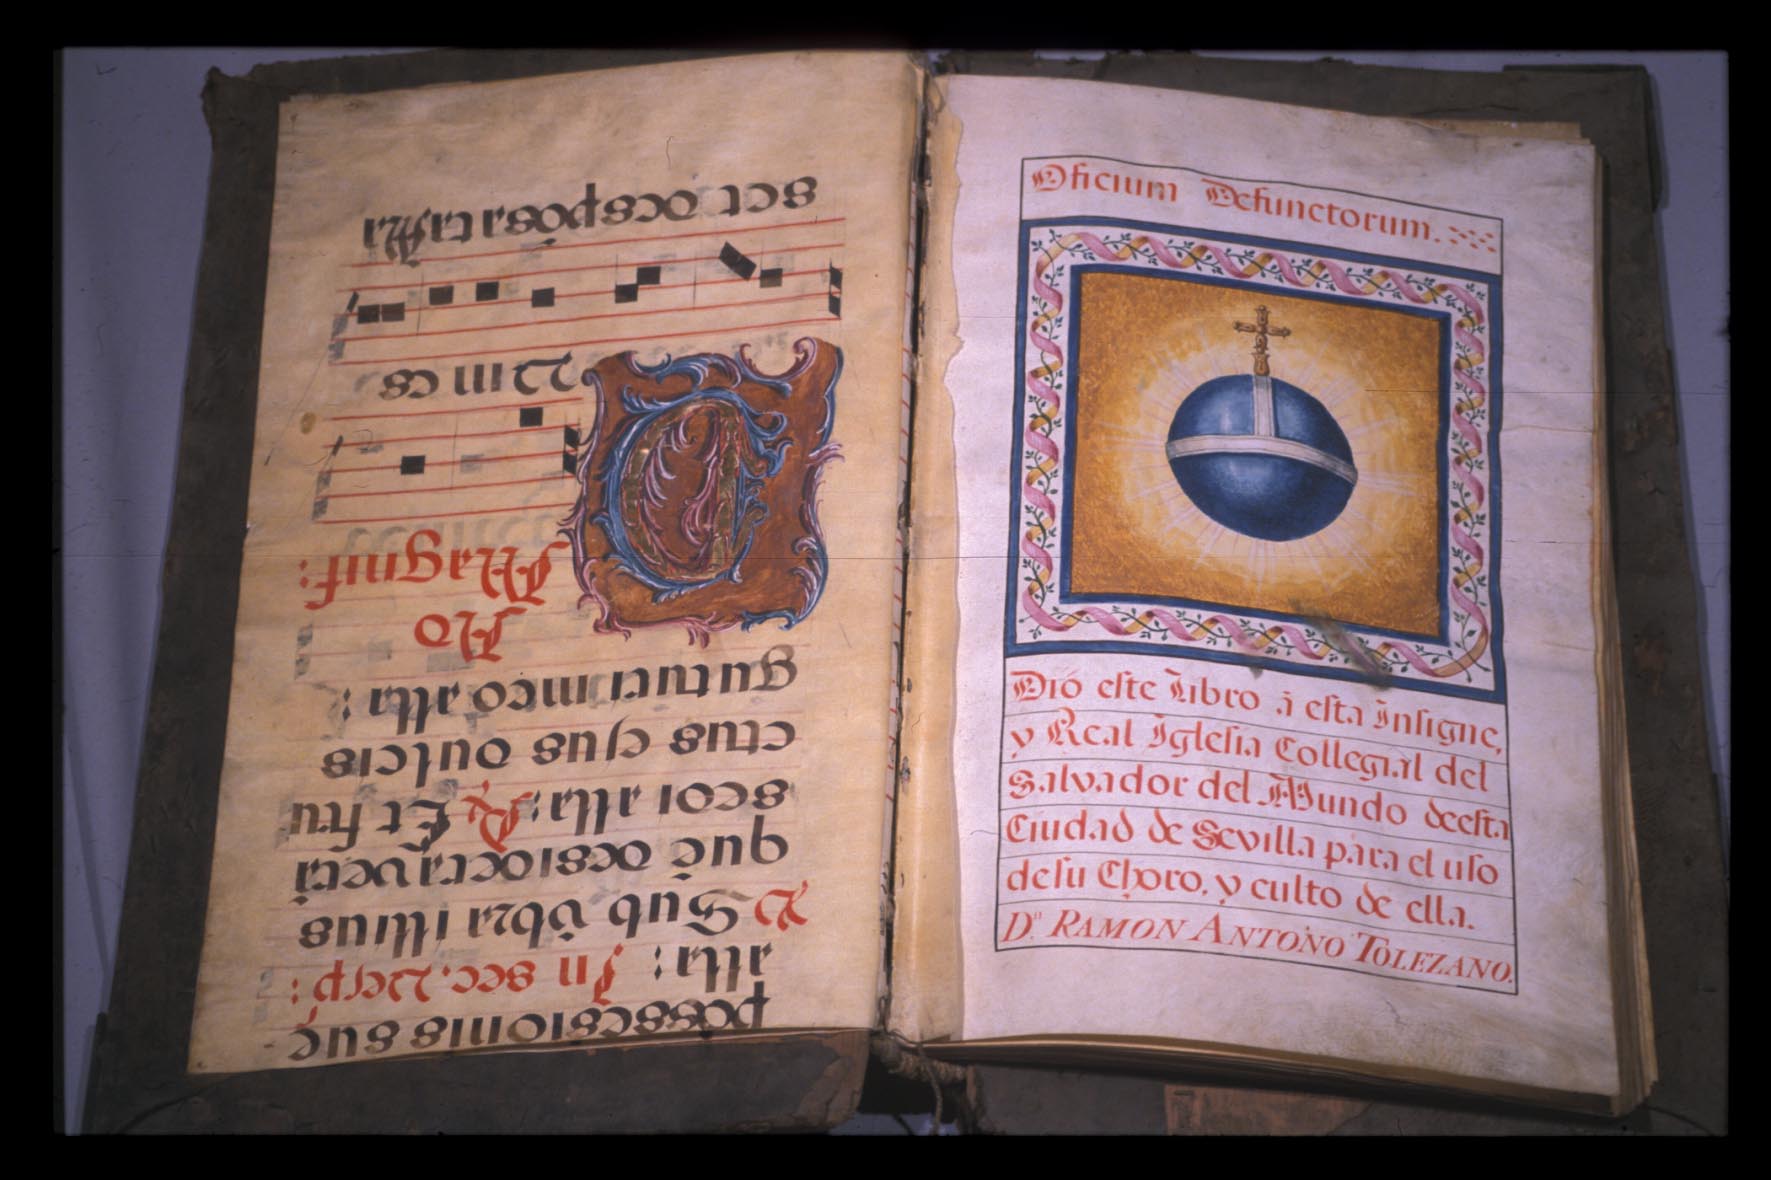 possesionis suẽ
alla: In sec. Vesp:
℣ Sub ũbra illius
quẽ desiderãverã
sedi alla: ℟ Et fru
ctus ejus dulcis
guturi meo alla:
Ad
Magnif:
CVm es
set desposata Ma
Oficium Defunctorum.
Dió este Libro á esta Insigne,
y Real Iglesia Collegial del
Salvador del Mundo deesta
Ciudad de Sevilla para el uso
desu Choro, y culto de ella.
Dⁿ. RAMON ANTONIO TOLEZANO.